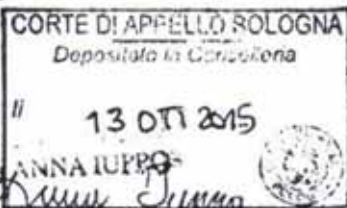 CORTE DI APPELLO BOLOGNA
Depositato in Cancelleria
il
13 OTT 2015
ANNA IUPPO